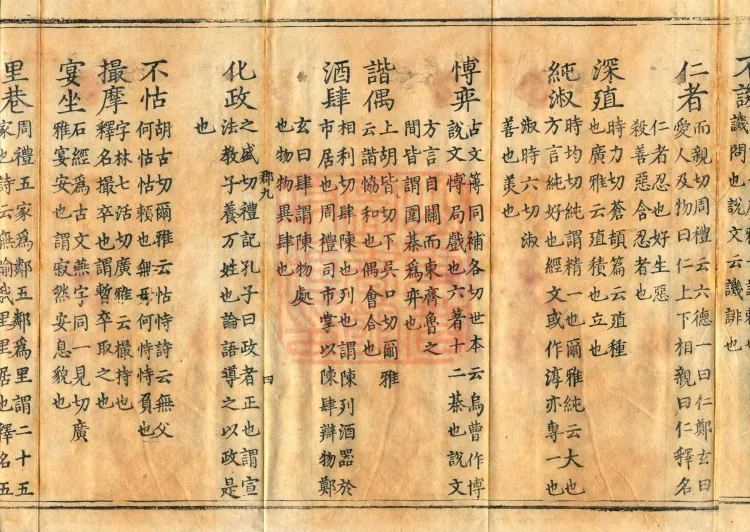 不譏
譏問也說文云譏誹也
仁者
而親切周禮云六德一曰仁鄭玄曰
愛人及物曰仁上下相親曰仁釋名
仁者忍也好生惡
殺善惡含忍者也
深殖
時力切蒼頡篇云殖種
也廣雅云殖積也立也
純淑
時均切純謂精一也爾雅純云大也
方言純好也經文或作淳亦專一也
淑時六切淑
善也美也
愽弈
古文簿同補各切世本云烏曹作愽
說文愽局戲也六著十二棊也說文
方言自關而東齊魯之
間皆謂圍棊為弈也
諧偶
上胡皆切下吳口切爾雅
云諧恊和也偶會合也
酒肆
相利切肆陳也列也謂陳列酒器於
市居也周禮司市掌以陳肆辯物鄭
玄曰肆謂陳物處
也物物異肆也
郡九
化政
之盛切禮記孔子曰政者正也謂宣
法教子養万姓也論語導之以政是
也
不怙
胡古切爾雅云怙恃詩云無父
何怙怙賴也無母何恃恃負也
撮摩
字林七活切廣雅云撮持也
釋名撮捽也謂暫卒取之也
宴坐
石經為古文燕字同一見切廣
雅宴安也謂寂然安息貌也
里巷
周禮五家為鄰五鄰為里謂二十五
家也詩云無踰我里里居也釋名五